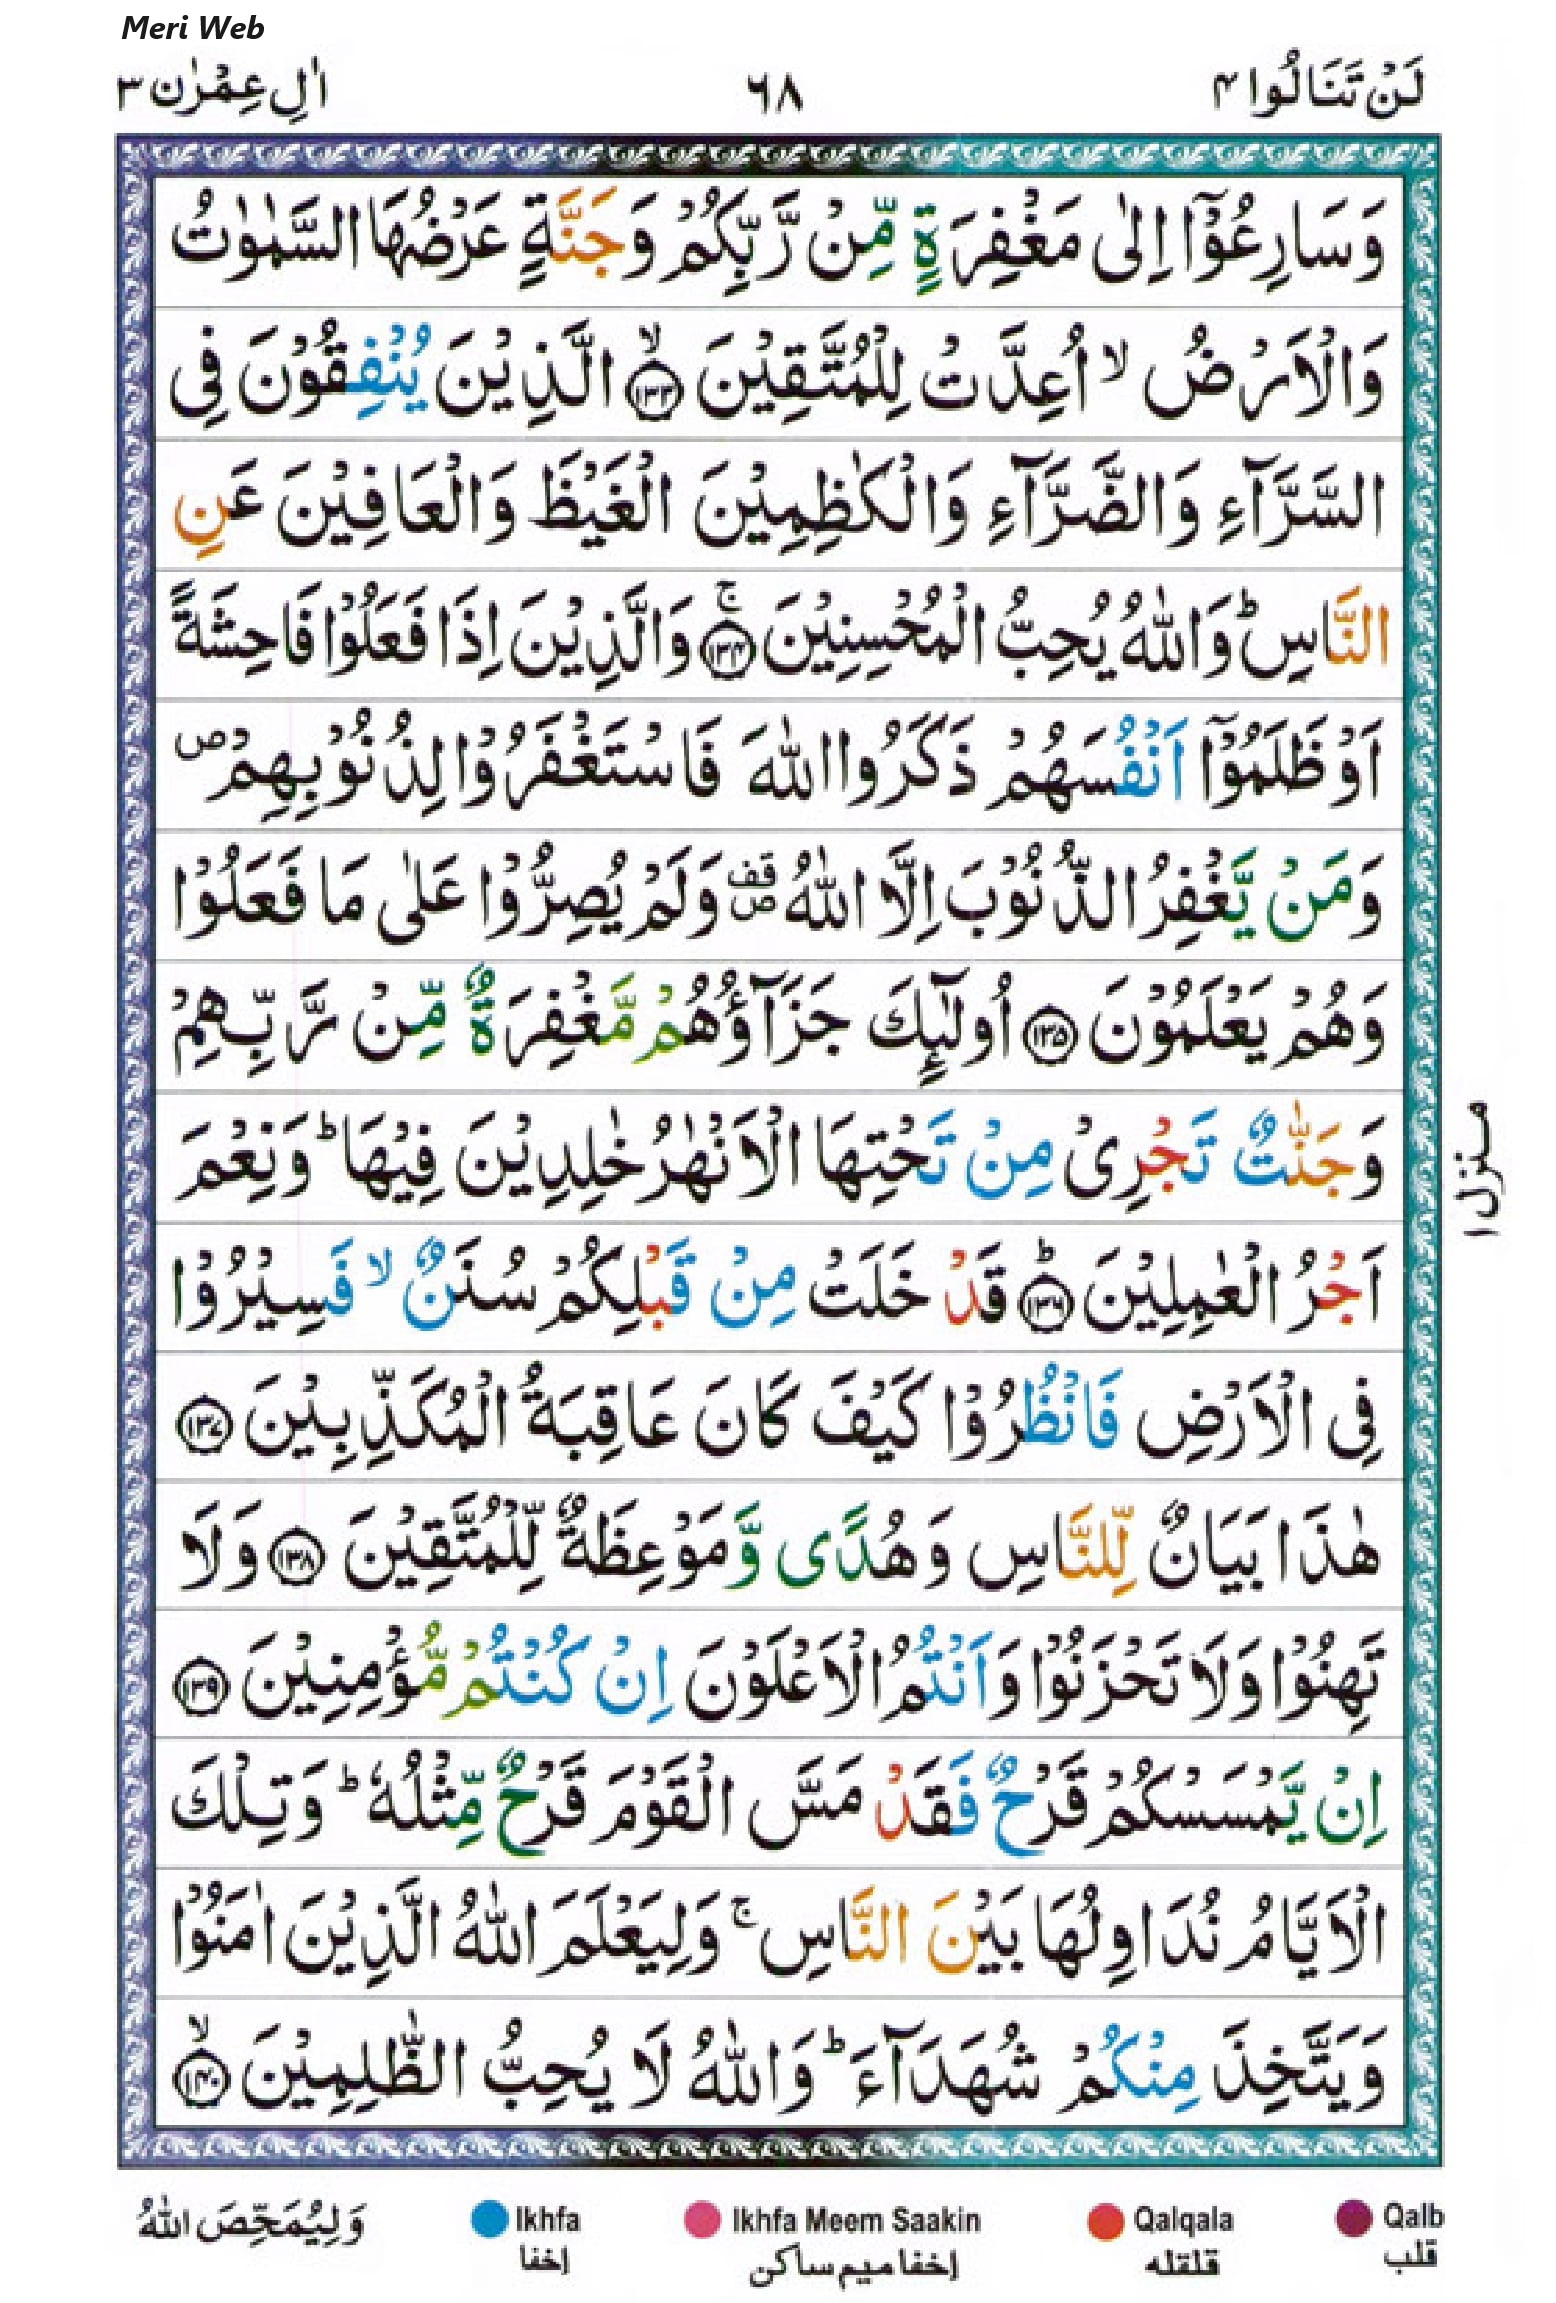 Meri Web
لَنْ تَنَالُوا ۴ ٦٨ اٰلِ عِمْرٰن ۳
وَسَارِعُوْۤا اِلٰى مَغْفِرَةٍ مِّنْ رَّبِّكُمْ وَجَنَّةٍ عَرْضُهَا السَّمٰوٰتُ
وَالْاَرْضُ ۙ اُعِدَّتْ لِلْمُتَّقِيْنَ ۙ﴿۱۳۳﴾ الَّذِيْنَ يُنْفِقُوْنَ فِى
السَّرَّآءِ وَالضَّرَّآءِ وَالْكٰظِمِيْنَ الْغَيْظَ وَالْعَافِيْنَ عَنِ
النَّاسِ ؕ وَاللّٰهُ يُحِبُّ الْمُحْسِنِيْنَ ۚ﴿۱۳۴﴾ وَالَّذِيْنَ اِذَا فَعَلُوْا فَاحِشَةً
اَوْ ظَلَمُوْۤا اَنْفُسَهُمْ ذَكَرُوا اللّٰهَ فَاسْتَغْفَرُوْا لِذُنُوْبِهِمْ ص
وَمَنْ يَّغْفِرُ الذُّنُوْبَ اِلَّا اللّٰهُ قف ص وَلَمْ يُصِرُّوْا عَلٰى مَا فَعَلُوْا
وَهُمْ يَعْلَمُوْنَ ﴿۱۳۵﴾ اُولٰٓئِكَ جَزَآؤُهُمْ مَّغْفِرَةٌ مِّنْ رَّبِّهِمْ
وَجَنّٰتٌ تَجْرِىْ مِنْ تَحْتِهَا الْاَنْهٰرُ خٰلِدِيْنَ فِيْهَا ؕ وَنِعْمَ
اَجْرُ الْعٰمِلِيْنَ ؕ﴿۱۳۶﴾ قَدْ خَلَتْ مِنْ قَبْلِكُمْ سُنَنٌ ۙ فَسِيْرُوْا
فِى الْاَرْضِ فَانْظُرُوْا كَيْفَ كَانَ عَاقِبَةُ الْمُكَذِّبِيْنَ ﴿۱۳۷﴾
هٰذَا بَيَانٌ لِّلنَّاسِ وَهُدًى وَّمَوْعِظَةٌ لِّلْمُتَّقِيْنَ ﴿۱۳۸﴾ وَلَا
تَهِنُوْا وَلَا تَحْزَنُوْا وَاَنْتُمُ الْاَعْلَوْنَ اِنْ كُنْتُمْ مُّؤْمِنِيْنَ ﴿۱۳۹﴾
اِنْ يَّمْسَسْكُمْ قَرْحٌ فَقَدْ مَسَّ الْقَوْمَ قَرْحٌ مِّثْلُهٗ ؕ وَتِلْكَ
الْاَيَّامُ نُدَاوِلُهَا بَيْنَ النَّاسِ ۚ وَلِيَعْلَمَ اللّٰهُ الَّذِيْنَ اٰمَنُوْا
وَيَتَّخِذَ مِنْكُمْ شُهَدَآءَ ؕ وَاللّٰهُ لَا يُحِبُّ الظّٰلِمِيْنَ ۙ﴿۱۴۰﴾
منزل ۱
وَلِيُمَحِّصَ اللّٰهُ
Ikhfa Ikhfa Meem Saakin Qalqala Qalb
إخفا إخفا ميم ساكن قلقله قلب